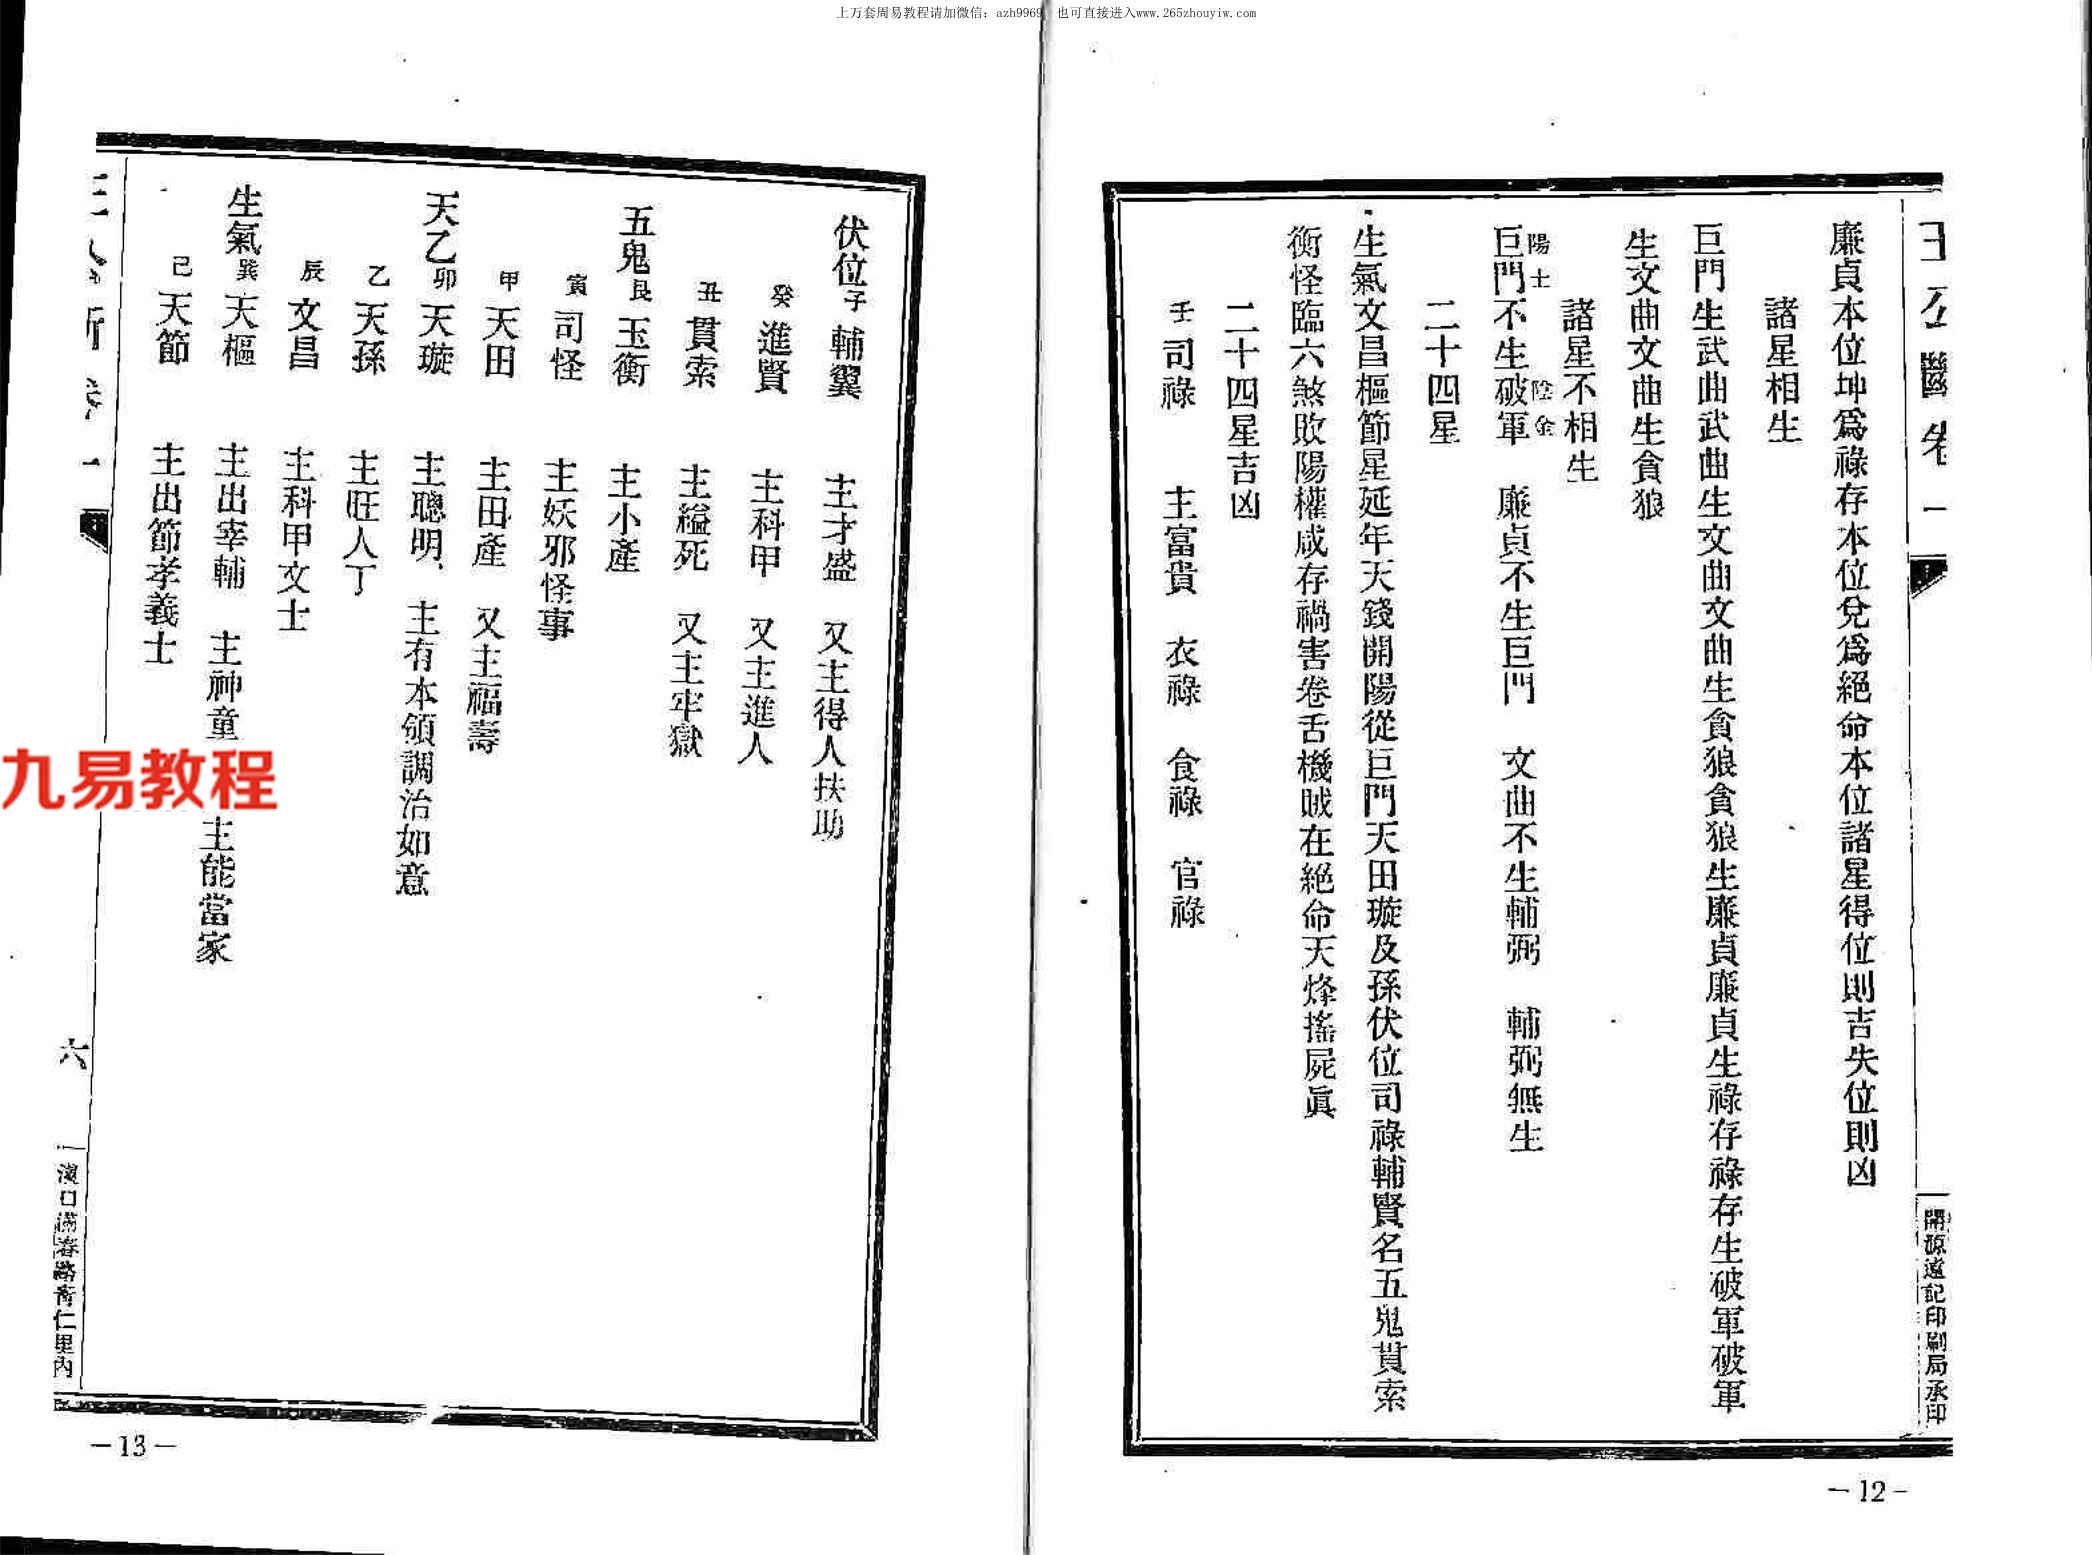 上万套周易教程请加微信：azh9969 也可直接进入www.265zhouyiw.com
王公斷卷一
開源遠記印刷局承印
廉貞本位坤爲祿存本位兌爲絕命本位諸星得位則吉失位則凶
諸星相生
巨門生武曲武曲生文曲文曲生貪狼貪狼生廉貞廉貞生祿存祿存生破軍破軍
生文曲文曲生貪狼
諸星不相生
陽土 陰金
巨門不生破軍 廉貞不生巨門 文曲不生輔弼 輔弼無生
二十四星
生氣文昌樞節星延年天錢開陽從巨門天田璇及孫伏位司祿輔賢名五鬼貫索
衡怪臨六煞敗陽權咸存禍害卷舌機賊在絕命天烽搖屍眞
二十四星吉凶
壬司祿 主富貴 衣祿 食祿 官祿
—12—
伏位子輔翼 主才盛 又主得人扶助
癸進賢 主科甲 又主進人
丑貫索 主縊死 又主牢獄
五鬼艮玉衡 主小產
寅司怪 主妖邪怪事
甲天田 主田產 又主福壽
天乙卯天璇 主聰明、主有本領調治如意
乙天孫 主旺人丁
辰文昌 主科甲文士
生氣巽天樞 主出宰輔 主神童 主能當家
己天節 主出節孝義士
六
漢口滿春路壽仁里內
—13—
九易教程